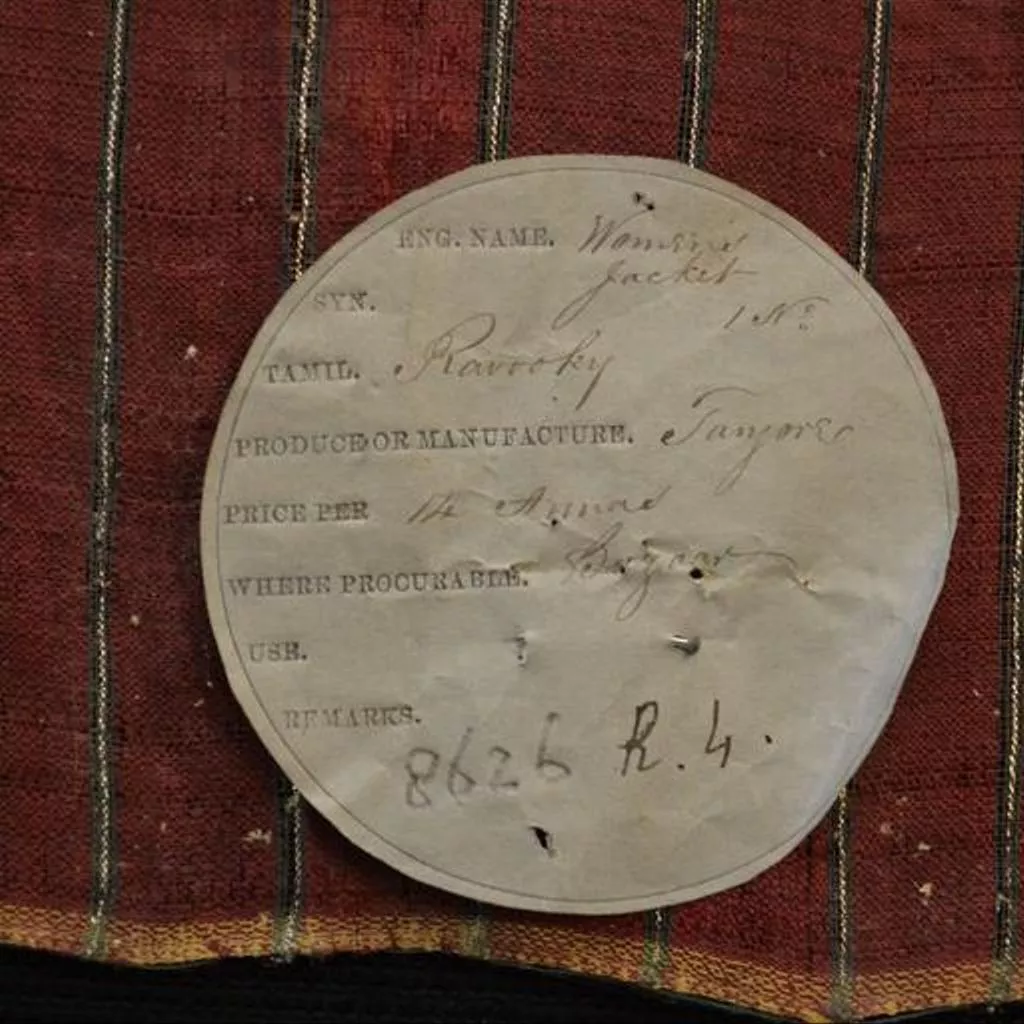 ENG. NAME. Women's
Jacket
SYN. 1 No
TAMIL. Ravooky
PRODUCE OR MANUFACTURE. Tanjore
PRICE PER 14 Annas
WHERE PROCURABLE. Bazaar
USE.
REMARKS.
8626 R.4.